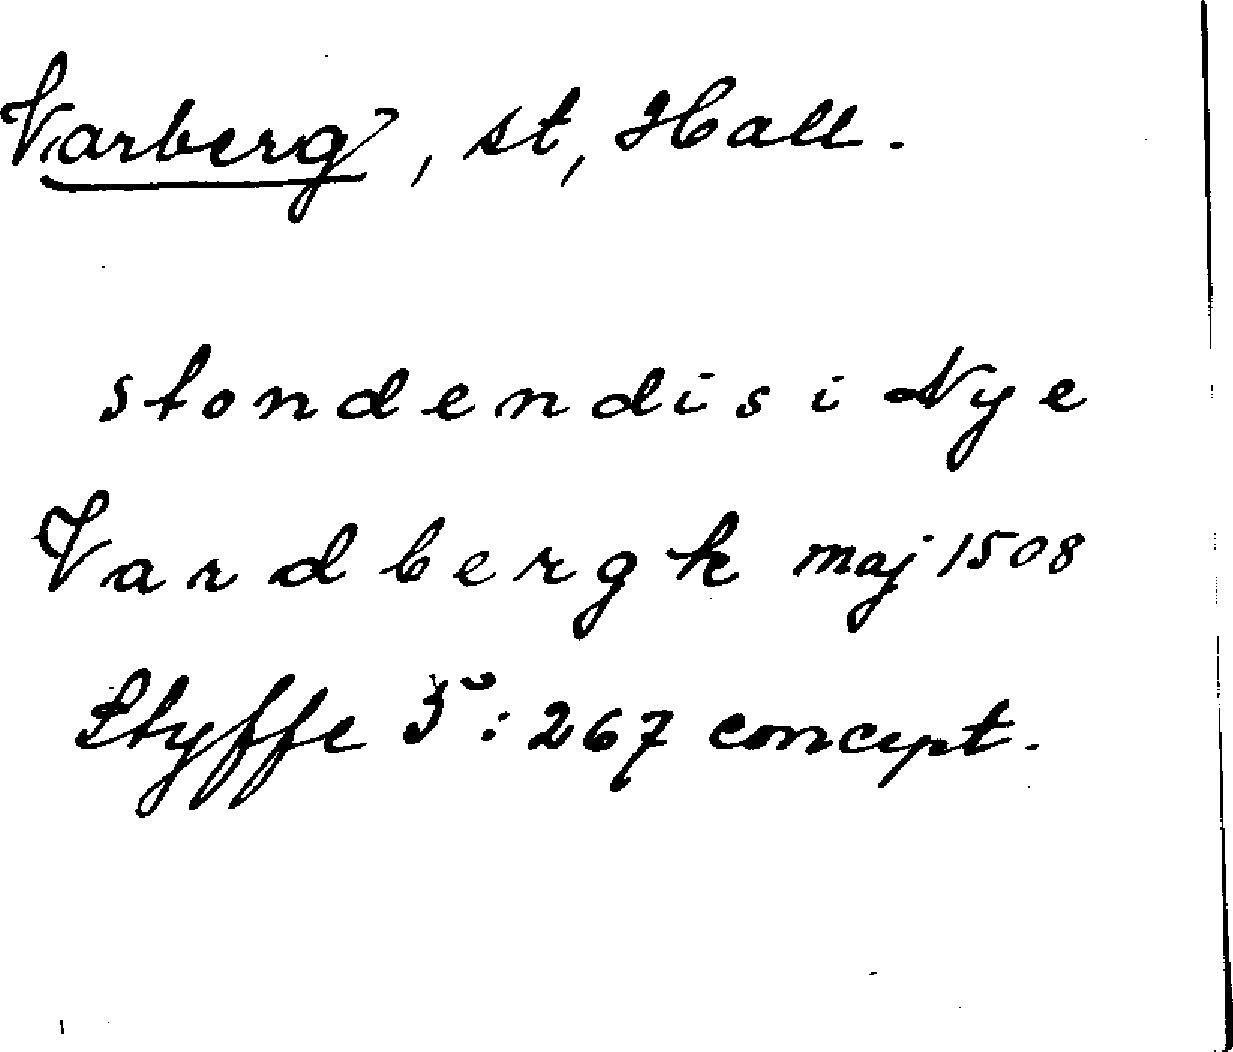 Varberg, st, Hall.
stondendis i Nye
Vardbergk maj 1508
Styffe 5: 267 concept.